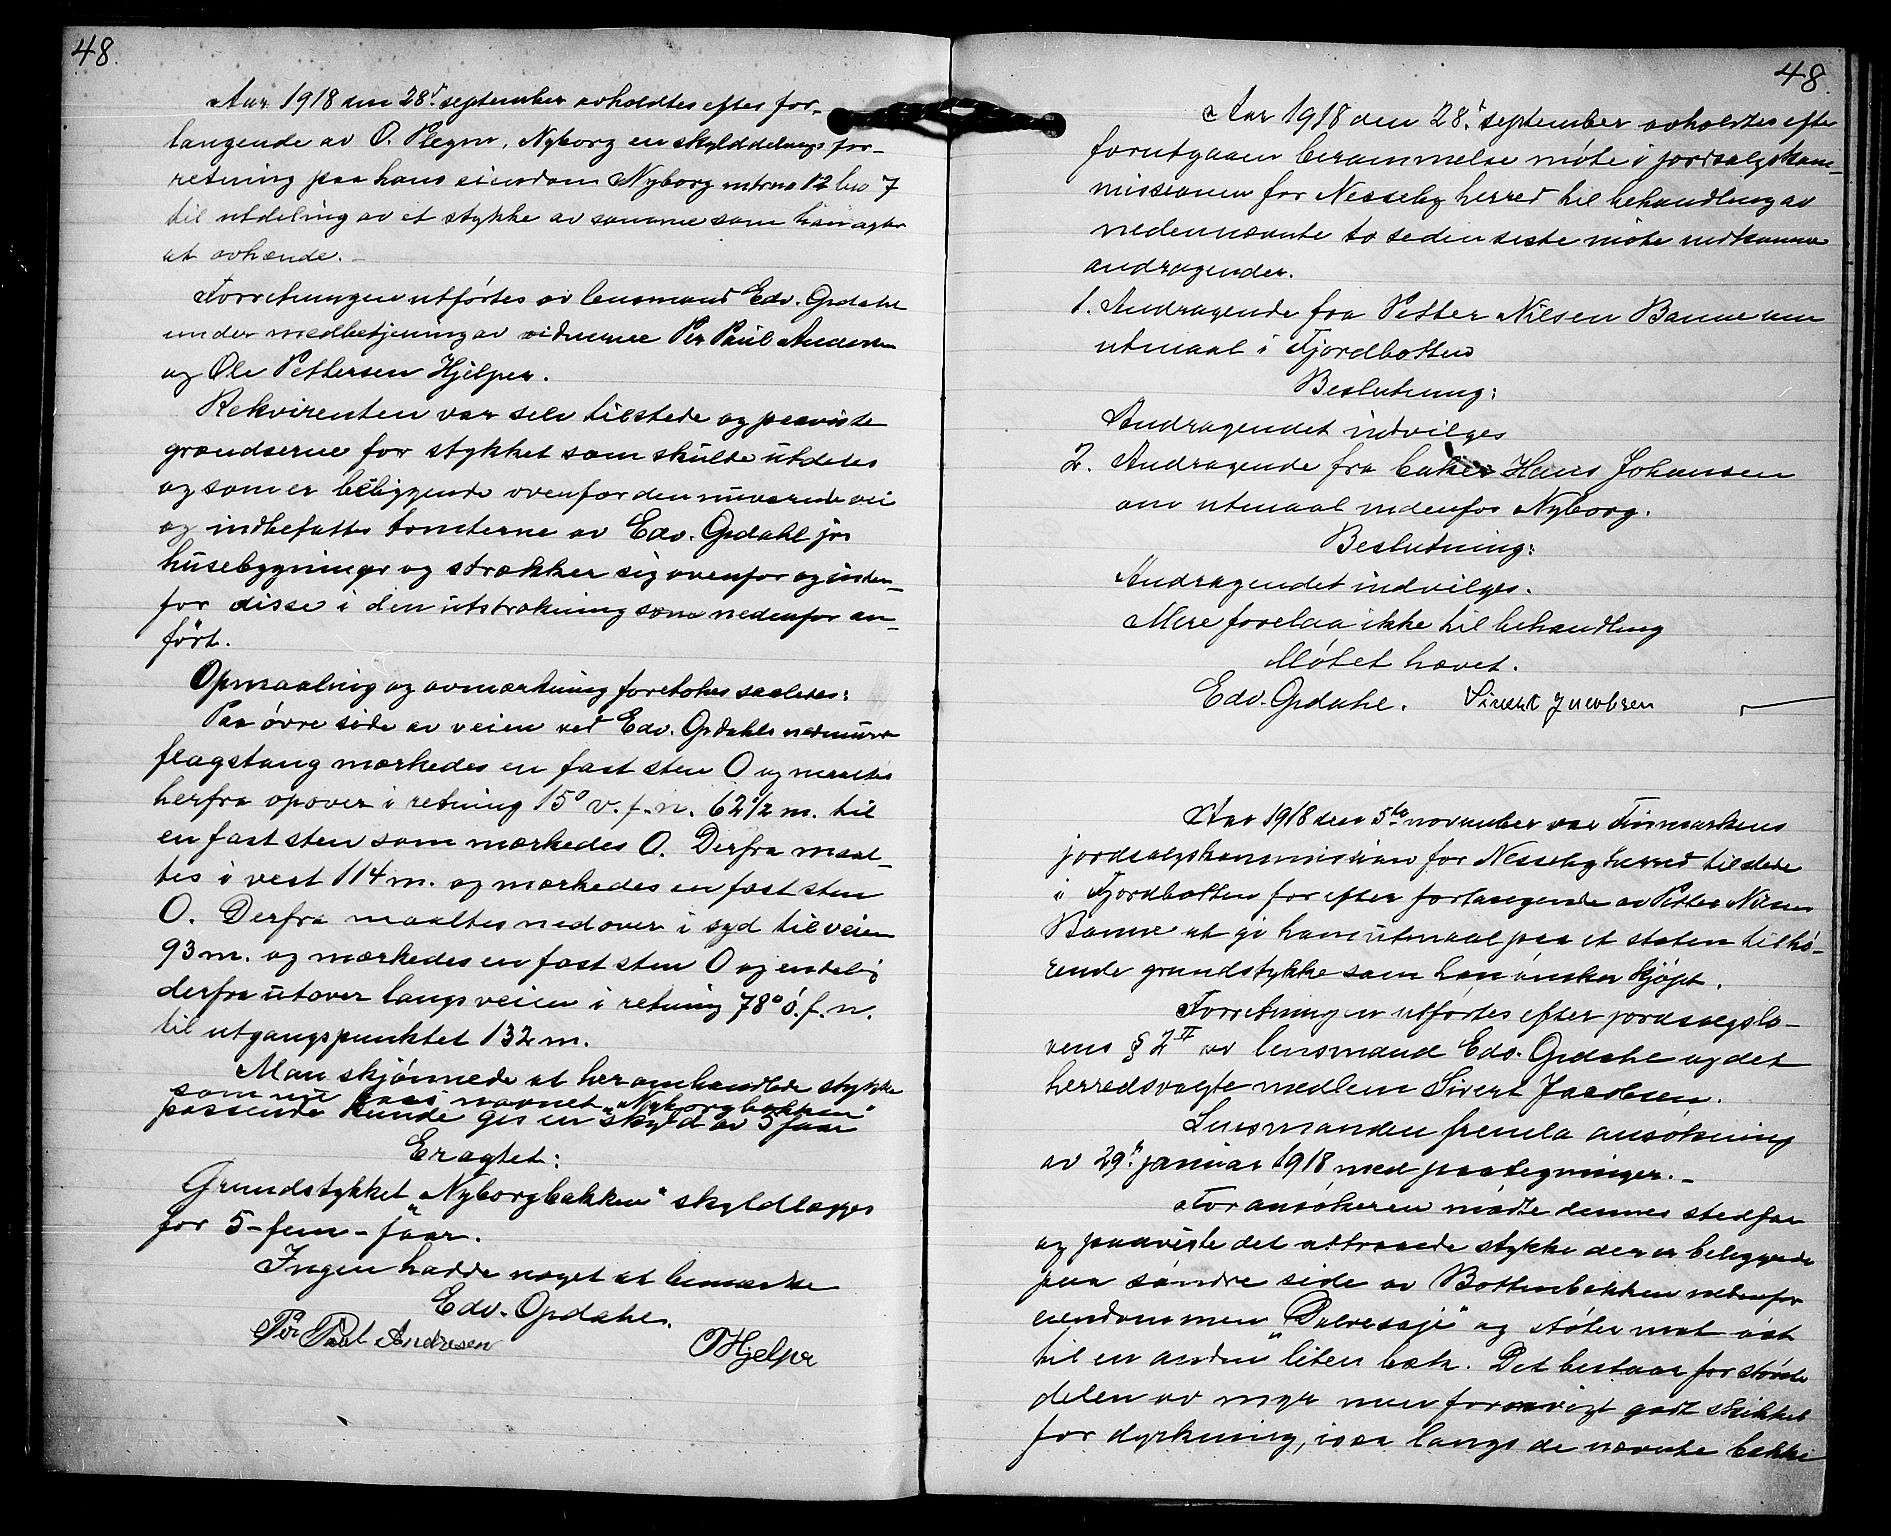 48.
Aar 1918 den 28de september avholdtes efter for-
langende av O. Plegm, Nyborg en skylddelings for-
retning paa hans eiendom Nyborg mtrno 12 bno 7
til utdeling av et stykke av samme som han agter
at avhænde.
Forretningen utførtes av lensmand Edv. Opdahl
under medbetjening av vidnerne Per Paul Andersen
og Ole Pettersen Hjelper.
Rekvirenten var selv tilstede og paaviste
grændserne for stykket som skulde utdeles
og som er beliggende ovenfor den nuværende vei
og indbefatter tomterne av Edv. Opdahl jrs
husebygninger og strækker sig ovenfor og inden-
for disse i den utstrækning som nedenfor an-
ført.
Opmaaling og avmærkning foretokes saaledes:
Paa øvre side av veien ved Edv. Opdahls nuværende
flagstang mærkedes en fast sten O og maaltes
herfra opover i retning 15° v.f.n. 62 1/2 m. til
en fast sten som mærkedes O. Derfra maal-
tes i vest 114 m. og mærkedes en fast sten
O. Derfra maaltes nedover i syd til veien
93 m. og mærkedes en fast sten O og endelig
derfra utover langs veien i retning 78° ø.f.n.
til utgangspunktet 132 m.
Man skjønnede at her omhandlede stykke
som nu faar navnet "Nyborgbakken"
passende kunde gis en skyld av 5 øre
Eragtet:
Grundstykket "Nyborgbakken" skyldlægges
for 5-fem-øre.
Ingen hadde noget at bemærke
Edv. Opdahl.
Per Paul Andresen
O P Hjelper
48.
Aar 1918 den 28de september avholdtes efter
forutgaaen berammelse møte i jordsalgskom-
missionen for Nesseby herred til behandling av
nedennævnte to seden siste møte indkomne
andragender.
1. Andragende fra Petter Nilsen Banne om
utmaal i Fjordbotten
Beslutning:
Andragendet indvilges
2. Andragende fra baker Hans Johansen
om utmaal nedenfor Nyborg.
Beslutning:
Andragendet indvilges.
Mere forelaa ikke til behandling
Møtet hævet.
Edv. Opdahl. Sivert Jacobsen
Aar 1918 den 5te november var Finmarkens
jordsalgskommission for Nesseby herred tilstede
i Fjordbotten for efter forlangende av Petter Nilsen
Banne at gi ham utmaal paa et staten tilhø-
rende grundstykke som han ønsker kjøpt.
Forretningen utførtes efter jordsalgslo-
vens § 2 II av lensmand Edv. Opdahl og det
herredsvalgte medlem Sivert Jacobsen.
Lensmanden fremla ansøkning
av 29de januar 1918 med paategninger.
For ansøkeren mødte dennes stedfar
og paaviste det attraaede stykke der er beliggende
paa søndre side av Bottenbekken nedenfor
eiendommen "Dalvesaje" og støter mot øst
til en anden liten bæk. Det bestaar for største
delen av myr men forøvrigt godt skikket
for dyrkning, især langs de nævnte bække